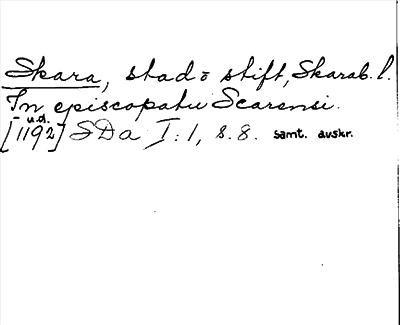 Skara, stad o stift, Skarab. l.
In episcopatu Scarensi.
u.d.
[1192] SDa I:1, s. 8. samt. avskr.